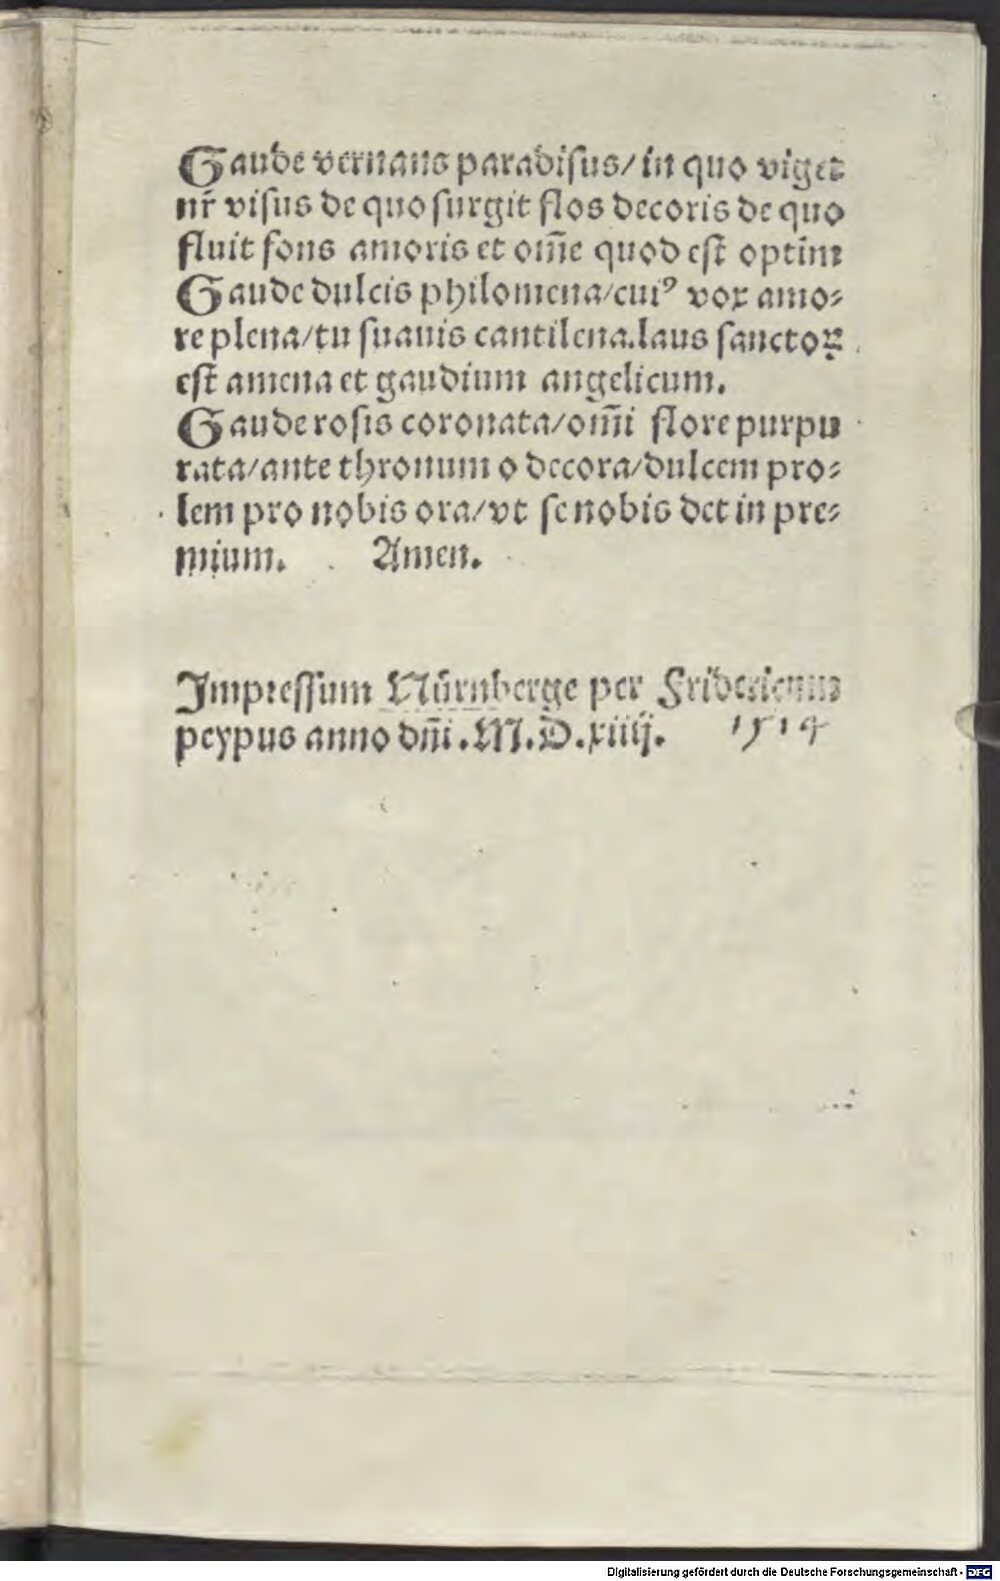 Gaude vernans paradisus/in quo viget
nr̄ visus de quo surgit flos decoris de quo
fluit fons amoris et om̄e quod est optīm
Gaude dulcis philomena/cuiꝰ vox amo⸗
re plena/tu suauis cantilena.laus sanctoꝝ
est amena et gaudium angelicum.
Gaude rosis coronata/om̄i flore purpu
rata/ante thronum o decora/dulcem pro⸗
lem pro nobis ora/vt se nobis det in pre⸗
mium. Amen.
Impressum Nürnberge per Fridericum
peypus anno dn̄i .M.D.xiiij. 1514
Digitalisierung gefördert durch die Deutsche Forschungsgemeinschaft - DFG